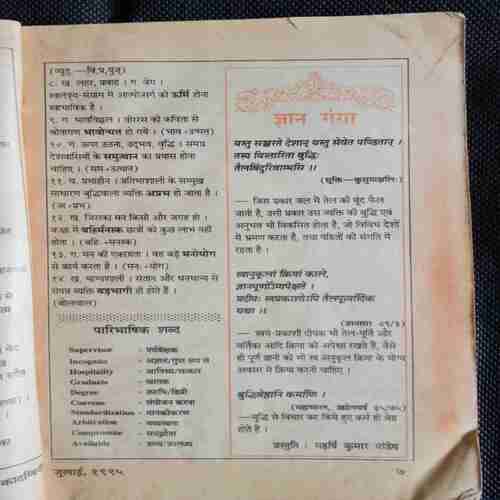 (व्युत् —वि,प्र,पुन्)
८. ख. लहर, प्रवाह । ग. वेग ।
स्वातंत्र्य-संग्राम में आत्मोत्सर्ग की ऊर्मि होना
स्वाभाविक है ।
९. ग. भावविह्वल । वीररस की कविता से
श्रोतागण भावोन्मत्त हो गये । (भाव+उन्मत्त)
१०. ग. ऊपर उठना, उद्भव, वृद्धि । समग्र
देशवासियों के समुत्थान का प्रयास होना
चाहिए । (सम्+उत्थान)
११. घ. प्रभाहीन । प्रतिभाशाली के सम्मुख
साधारण बुद्धिवाला व्यक्ति अप्रभ हो जाता है ।
(अ+प्रभ)
१२. ख. जिसका मन किसी और जगह हो ।
कक्षा में बहिर्मनस्क छात्रों को कुछ लाभ नहीं
होता । (बहिः+मनस्क)
१३. ग. मन की एकाग्रता । वह बड़े मनोयोग
से कार्य करता है । (मनः+योग)
१४. ख. भाग्यशाली । संतान और धनधान्य से
संपन्न व्यक्ति बड़भागी ही होते हैं ।
(बोलचाल)
पारिभाषिक शब्द
Supervisor - पर्यवेक्षक
Incognito - अज्ञात/गुप्त रूप से
Hospitality - आतिथ्य/सत्कार
Graduate - स्नातक
Degree - उपाधि/डिग्री
Convene - संयोजन करना
Standardization - मानकीकरण
Arbitration - मध्यस्थता
Compromise - समझौता
Available - प्राप्य/उपलब्ध
जुलाई, १९९५
ज्ञान गंगा
यस्तु सञ्चरते देशान् यस्तु सेवेत पण्डितान् ।
तस्य विस्तारिता बुद्धिः
तैलबिंदुरिवाम्भसि ।।
(सूक्ति-कुसुमाञ्जलि)
— जिस प्रकार जल में तेल की बूंद फैल
जाती है, उसी प्रकार उस व्यक्ति की बुद्धि एवं
अनुभव भी विकसित होता है, जो विविध देशों
में भ्रमण करता है, तथा पंडितों की संगति में
रहता है ।
स्वानुकूलां क्रियां काले,
ज्ञानपूर्णोऽप्यपेक्षते ।
प्रदीपः स्वप्रकाशोऽपि तैलपूर्त्यादिकं
यथा ।।
— स्वयं-प्रकाशी दीपक भी तेल-पूर्ति और
वर्तिका आदि क्रिया की अपेक्षा रखते हैं, वैसे
ही पूर्ण ज्ञानी को भी स्व अनुकूल क्रिया के योग्य
अवसर में क्रिया करनी चाहिए ।
बुद्धिश्रेष्ठानि कर्माणि ।
(महाभारत, उद्योगपर्व ३५/७५)
— बुद्धि से विचार कर किये हुए कर्म ही श्रेष्ठ
होते हैं ।
प्रस्तुति : महर्षि कुमार पाण्डेय